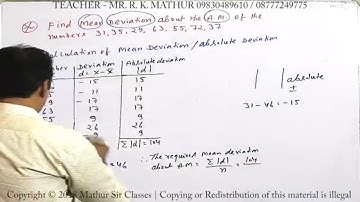 TEACHER - MR. R. K. MATHUR 09830489610 / 08777249775
Find Mean Deviation about the A.M. of the
numbers 31, 35, 29, 63, 55, 72, 37
Calculation of Mean Deviation / absolute Deviation
Deviation
d = x - x̄
Absolute deviation
|d|
- 15 15
- 11 11
- 17 17
17 17
9 9
26 26
9
Σ|d| = 104
absolute
±
31 - 46 = -15
= 46
∴ The required mean deviation
about A.M = Σ|d| / n = 104
Copyright © Mathur Sir Classes | Copying or Redistribution of this material is illegal